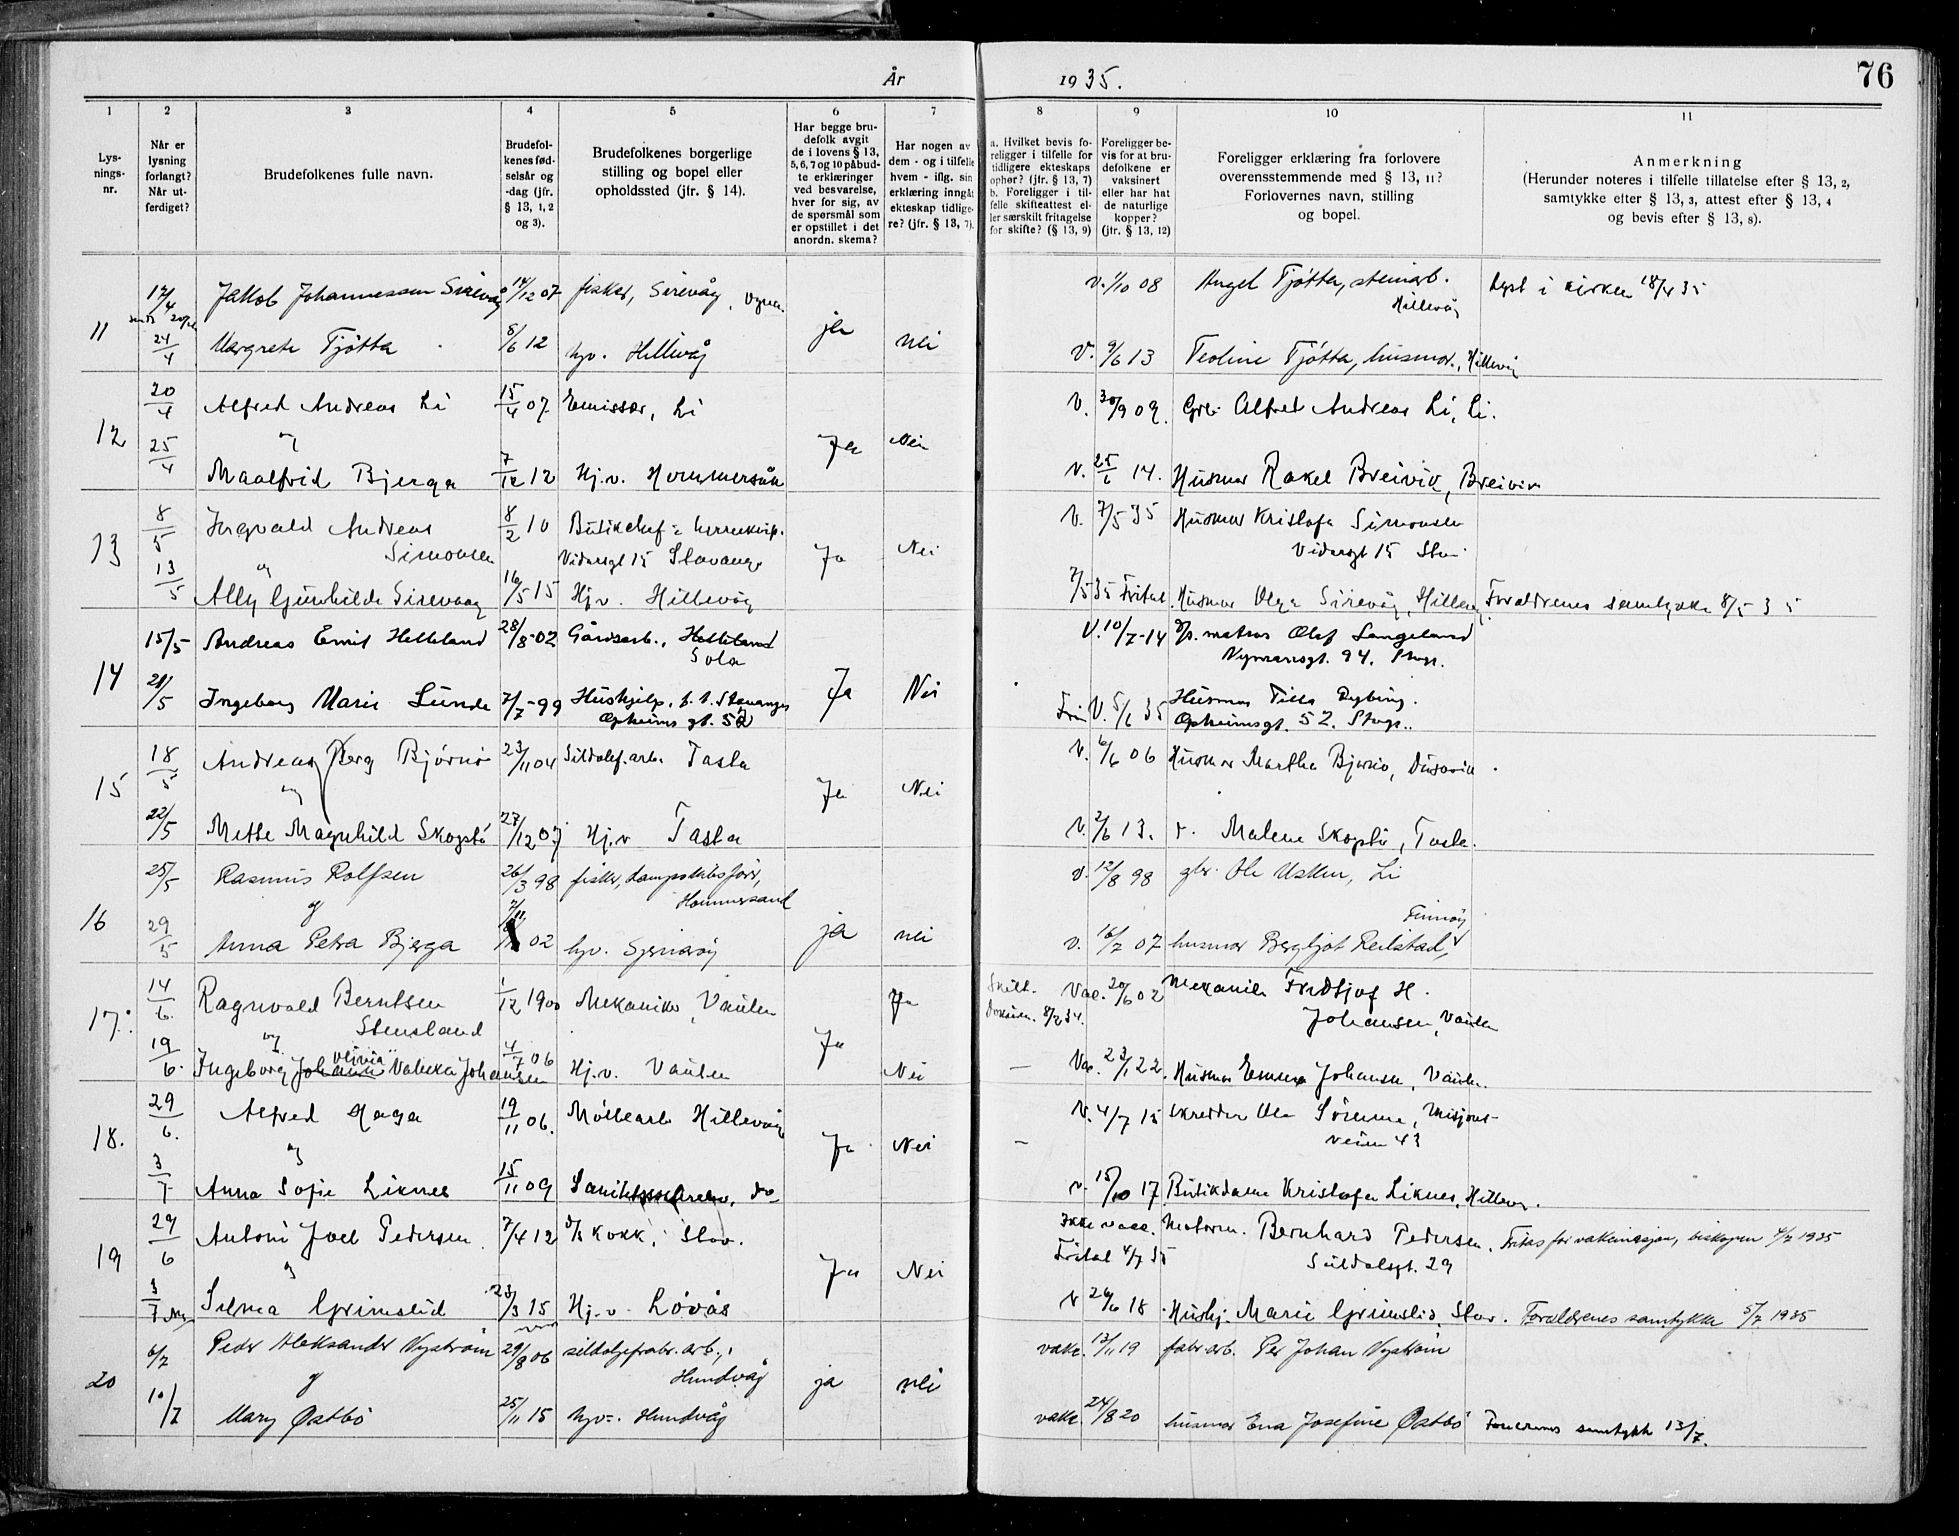 År 1935. 76
1 2 3 4 5 6 7 8 9 10 11
Lys-
nings-
nr.
Når er
lysning
forlangt?
Når ut-
ferdiget?
Brudefolkenes fulle navn.
Brudefol-
kenes fød-
selsår og
-dag (jfr.
§ 13, 1, 2
og 3).
Brudefolkenes borgerlige
stilling og bopel eller
opholdssted (jfr. § 14).
Har begge bru-
defolk avgit
de i lovens § 13,
5, 6, 7 og 10 påbud-
te erklæringer
ved besvarelse,
hver for sig, av
de spørsmål som
er opstillet i det
anordn. skema?
Har nogen av
dem - og i tilfelle
hvem - iflg. sin
erklæring inngåt
ekteskap tidlige-
re? (jfr. § 13, 7).
a. Hvilket bevis fo-
religger i tilfelle for
tidligere ekteskaps
ophør? (jfr. § 13, 7)
b. Foreligger i til-
felle skifteattest el-
ler særskilt fritagelse
for skifte? (§ 13, 9)
Foreligger be-
vis for at bru-
defolkene er
vaksinert
eller har hat
de naturlige
kopper?
(jfr. § 13, 12)
Foreligger erklæring fra forlovere
overensstemmende med § 13, 11?
Forlovernes navn, stilling
og bopel.
Anmerkning
(Herunder noteres i tilfelle tillatelse efter § 13, 2,
samtykke efter § 13, 3, attest efter § 13, 4
og bevis efter § 13, 8).
17/4 Jakob Johannessen Sirevåg 14/12 07 fisker, Sirevåg, Ogna v. 1/10 08 Angel Tjøtta, steinarb. Lyst i kirken 18/4 35
Hillevåg
11 24/4 Margrete Tjøtta 5/6 12 hjv. Hillevåg ja nei v. 9/6 13 Teoline Tjøtta, husmor, Hillevåg
20/4 Alfred Andreas Li 15/4 07 Emissær, Li V. 30/9 09. Grb. Alfred Andreas Li, Li.
12 og Ja Nei
25/4 Maalfrid Bjerga 7/12 12 Hj.v. Hommersåk v. 25/6 14. Husmor Rakel Breivik, Breivik
8/5 Ingvald Andreas 8/2 10 Butikchef i herrekvip. V. 7/5 35 Husmor Kristofa Simonsen
Simonsen Vidarsgt 15 Stavanger Vidarsgt 15 Stav.
13 og Ja Nei
13/5 Ally Gunhilde Sirevaag 16/5 15 Hj.v. Hillevåg 7/5 35 Fritat. Husmor Olga Sirevåg, Hillevåg. Foreldrenes samtykke 8/5 35
15/5 Andreas Emil Helleland 28/8-02 Gårdsarb., Helleland V. 10/7-14 matros Olaf Langeland
Sola Nymansgt. 94. Stvgr.
14 Ja Nei
21/5 Ingeborg Marie Lunde 7/7-99 Hushjelp, Stavanger V. 5/6 35 Husmor Tilla Dybing.
Opheims gt. 52 Opheimsgt. 52. Stvgr..
18/5 Andreas Berg Bjørnø 23/11 04 Sildolef.arb. Tasta V. 6/6 06 Husmor Martha Bjørnø, Dusavik
15 og Ja Nei
22/5 Mette Magnhild Skogstø 27/12 07 Hj.v Tasta V. 2/6 13. Malene Skogstø, Tasta.
25/5 Rasmus Rolfsen 26/3 98 fisker, Hommersand v. 12/8 98 gbr. Ole Usken, Li
16 og 7/11 ja nei
29/5 Anna Petra Bjerga 02 hjv. Sjernarøy v. 16/7 07 husmor Bergljot Reilstad, Finnøy
14/6 Ragnvald Berntsen 1/12 1900 Mekaniker, Vaulen Ja Skilt. Vac. 20/6 02 Mekaniker Fridtjof H.
Stensland 8/2 34. Johansen, Vaulen
17. og Ja
19/6. Ingeborg Johanne Olivia Valieka Johansen 4/7 06 Hj.v. Vaulen Nei — Vac. 23/1 22. Husmor Emma Johansen, Vaulen.
29/6. Alfred Haga 19/11 06. Møllearb Hillevåg V. 4/7 15 skredder Ole Sømme, Misjons-
veien 43
18. og Ja Nei —
3/7 Anna Sofie Liknes 15/11 09 do v. 15/10 17 Butikdame Kristofa Liknes, Hillevåg.
29/6 Antoni Joel Pedersen 7/4 12 d/s Kokk, Stav. Ikke vacc. Motorm. Bernhard Pedersen. Fritas for vaksinasjon, biskopen 4/7 1935
Fritat 4/7 35 Suldalsgt. 29
19 og Ja Nei
3/7 Silma Grimslid 23/3 15 Hj.v. Løvås V 24/6 18 Hushj. Marie Grimslid, Stav. Foreldrenes samtykke 5/7 1935
6/7 Peder Aleksander Nystrøm 29/8 06 sildoljefabr.arb., vakc. 13/11 19 fabr.arb. Per Johan Nystrøm
Hundvåg
20 og ja nei
10/7 Mary Østbø 25/11 15 hjv. Hundvåg vakc. 24/8 20 husmor Ena Josefine Østbø Foreldrenes samtykke 13/7.